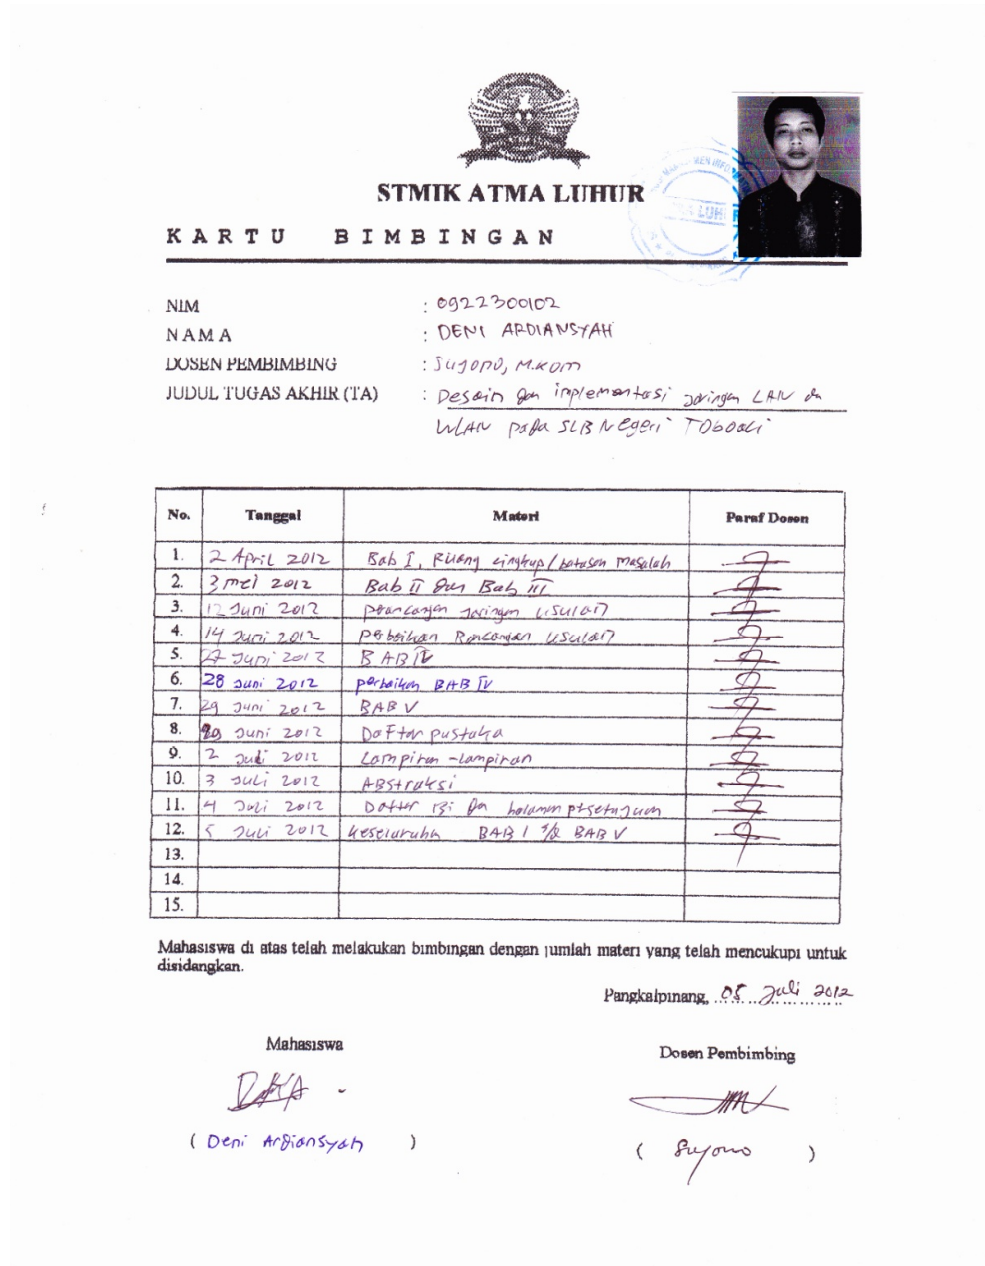 STMIK ATMA LUHUR
KARTU BIMBINGAN
NIM : 0922300102
NAMA : DENI ARDIANSYAH
DOSEN PEMBIMBING : Sujono, M.Kom
JUDUL TUGAS AKHIR (TA) : Desain dan implementasi Jaringan LAN dan
WLAN pada SLB Negeri Toboali
No. Tanggal Materi Paraf Dosen
1. 2 April 2012 Bab I, Ruang Lingkup/batasan Masalah
2. 3 mei 2012 Bab II dan Bab III
3. 12 Juni 2012 perancangan Jaringan Usulan
4. 14 Juni 2012 perbaikan Rancangan Usulan
5. 27 Juni 2012 BAB IV
6. 28 Juni 2012 perbaikan BAB IV
7. 29 Juni 2012 BAB V
8. Juni 2012 Daftar pustaka
9. 2 Juli 2012 Lampiran -lampiran
10. 3 Juli 2012 ABstraksi
11. 4 Juli 2012 Daftar isi dan halaman
12. 5 Juli 2012 keseluruhan BAB I s/d BAB V
13.
14.
15.
Mahasiswa di atas telah melakukan bimbingan dengan jumlah materi yang telah mencukupi untuk
disidangkan.
Pangkalpinang, 05 Juli 2012
Mahasiswa Dosen Pembimbing
( Deni Ardiansyah ) ( Sujono )